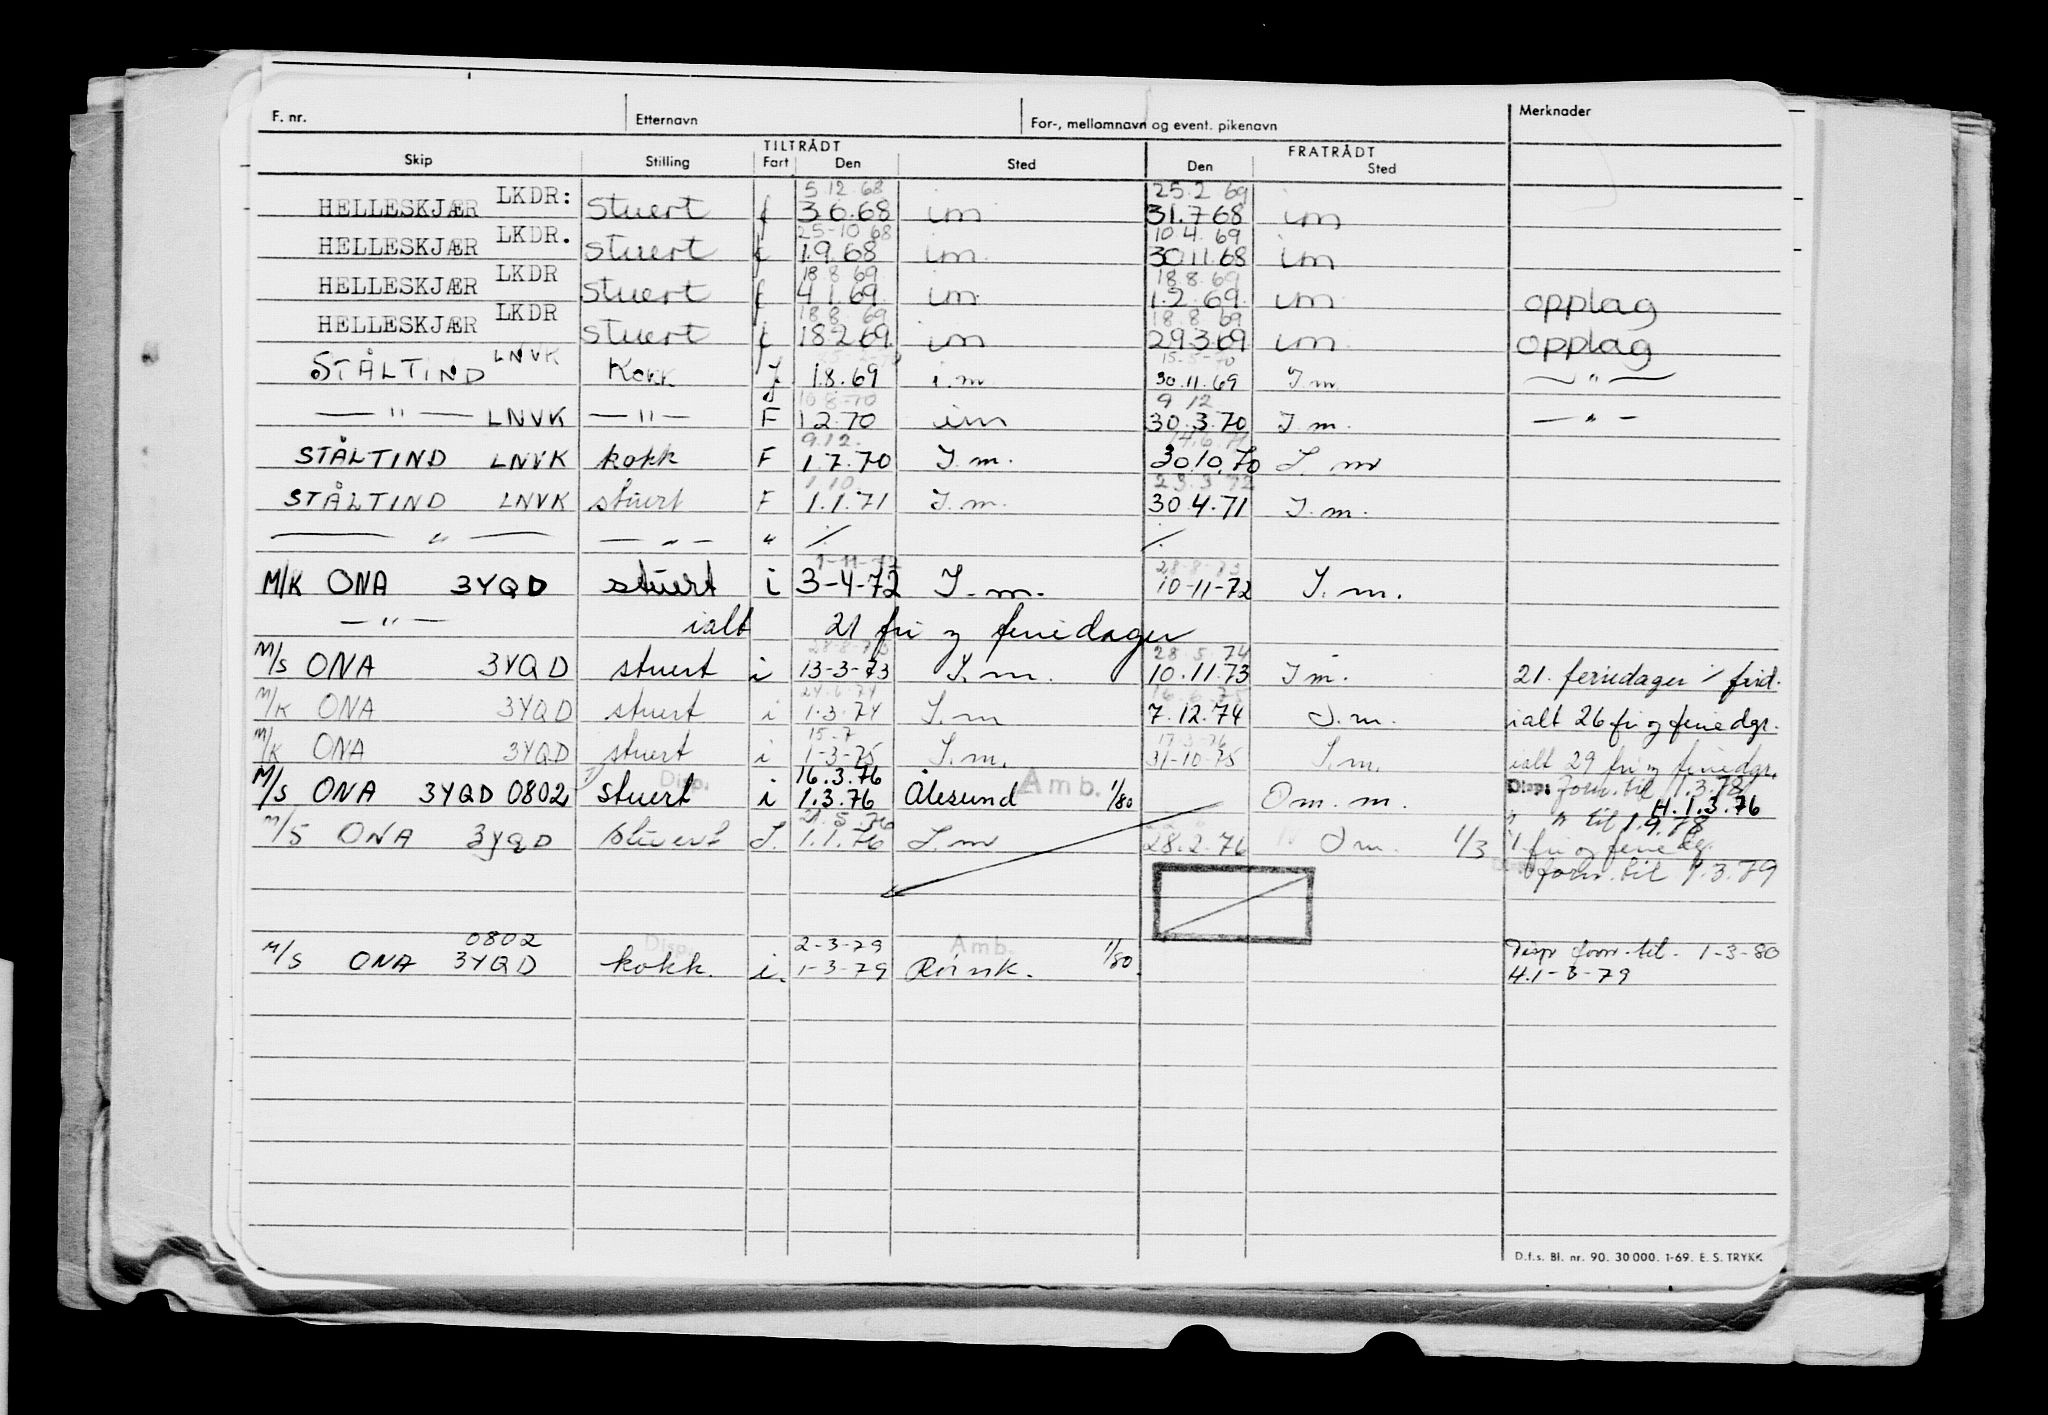 F. nr. Etternavn For-, mellomnavn og event. pikenavn Merknader
TILTRÅDT FRATRÅDT
Skip Stilling Fart Den Sted Den Sted
5 12.68 25.2 69
HELLESKJÆR LKDR: stuert f 3 6.68 im 31.7 68 im
25-10 68 10 4. 69
HELLESKJÆR LKDR. stuert f 1.9.68 im. 30.11.68 im
18 8 69 18.8.69
HELLESKJÆR LKDR stuert f 4 1.69. im. 1.2.69. im opplag
18.8 69 18.8 69
HELLESKJÆR LKDR stuert f 18.2.69. im 29.3.69 im opplag
15.5-70
STÅLTIND LNVK Kokk f 1.8.69 i.m. 30.11.69 I.m. — " —
10 8-70 9 12
— " — LNVK — " — F 1 2.70 im 30.3.70 I m. — " —
9.12. 14.6.71
STÅLTIND LNVK kokk F 1.7.70 I.m. 30.10.70 I. m
1.10. 23.3 72
STÅLTIND LNVK stuert F 1.1.71 I.m. 30.4.71 I.m.
— " — — " — " / /.
1-11-72 28-8-73
M/K ONA 3YQD stuert i 3-4-72 I.m. 10-11-72 I.m.
— " — ialt 21 fri og feriedager
28-8-73 28.5.74
M/S ONA 3YQD stuert i 13-3-73 I.m. 10.11.73 I m. 21. feriedager / frid.
24.6.74 16.6.75
M/K ONA 3YQD stuert i 1.3.74 I.m 7.12.74 I.m. ialt 26 fri og feriedgr.
15.7 17.3.76
M/K ONA 3YQD stuert i 1-3-75 I.m. 31-10-75 I.m. ialt 29 fri og feriedgr.
Disp. 16.3.76 Amb. Disp: forn. til 1.3.78
M/S ONA 3YQD 0802 stuert i 1.3.76 Ålesund 1/80 Om. m. H.1.3.76
" til 1.9.78
21.5.76
M/S ONA 3YQD stuert I. 1.1.76 I.m 28.2.76 I m. 1/3 fri og feriedg.
forn. til 1.3.79
0802 Disp. 2-3-79 Amb. Disp forn. til. 1-3-80
M/S ONA 3YQD kokk. i. 1-3-79 1/80. H.1-3-79
D.f.s. Bl. nr. 90. 30 000. 1-69. E. S. TRYKK